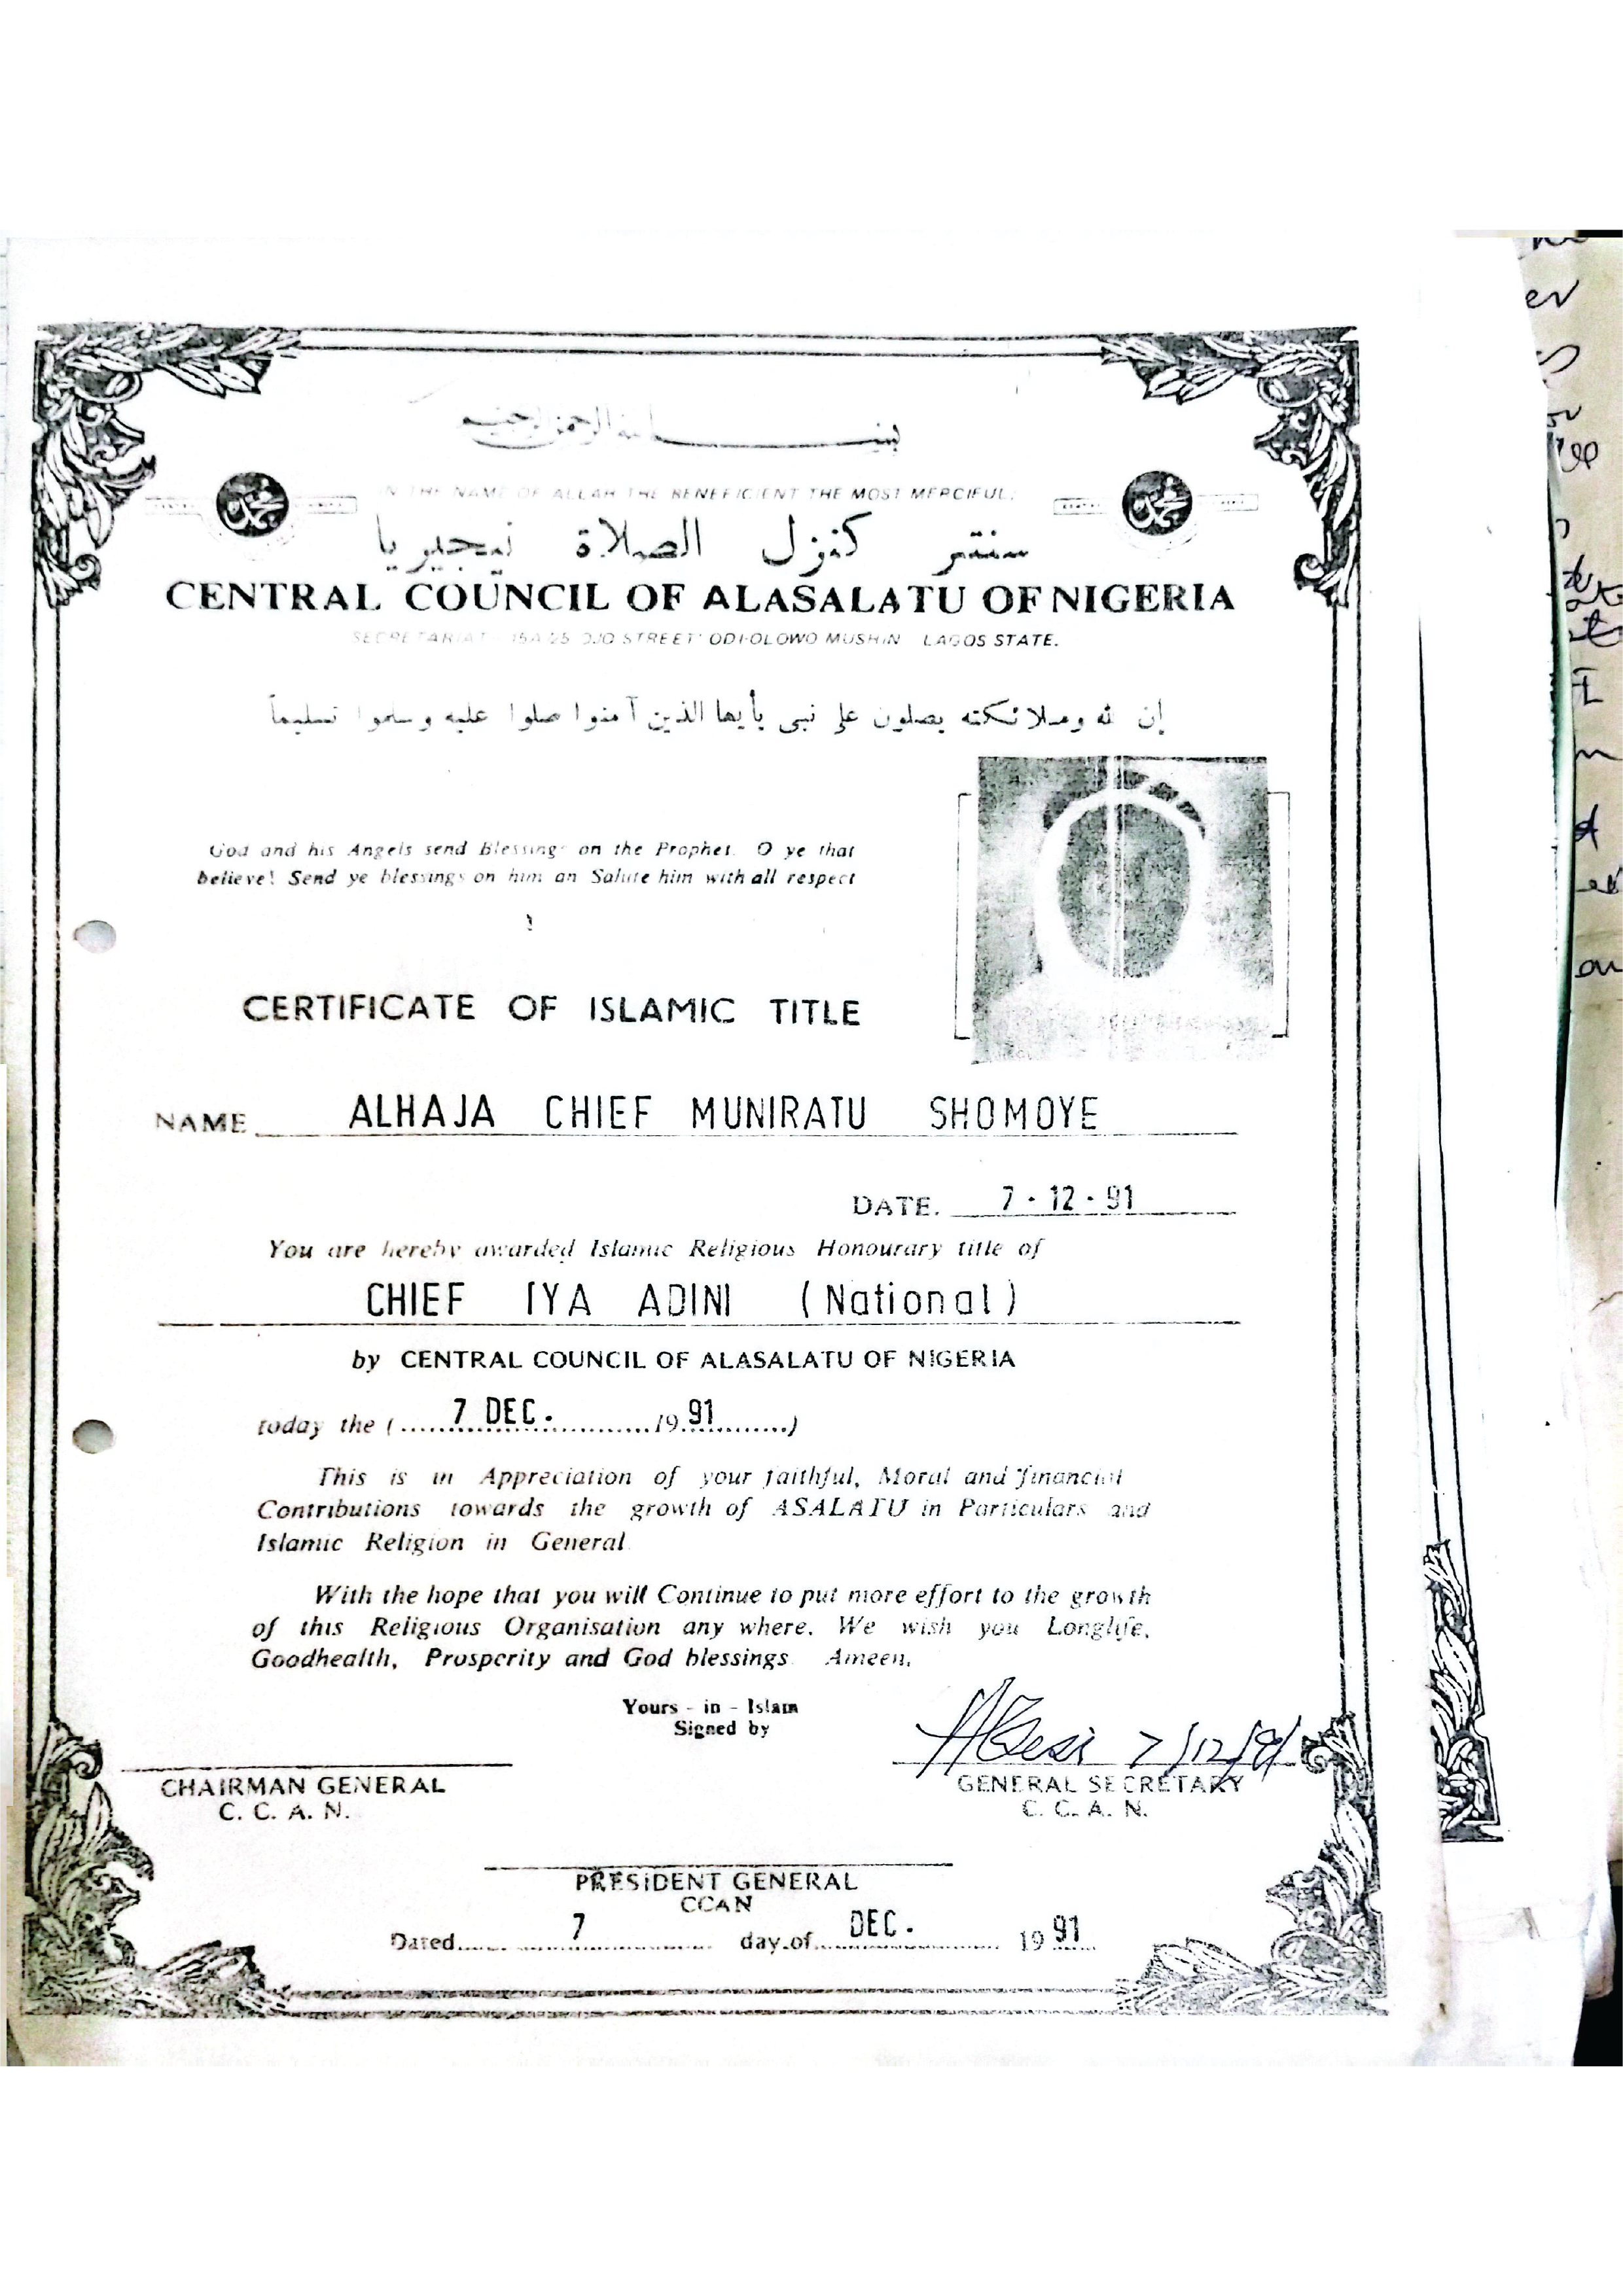 بســـــم الله الرحمن الرحيم
IN THE NAME OF ALLAH THE BENEFICIENT THE MOST MERCIFUL.
محمد
محمد
سنتر كنزل الصلاة نيجيريا
CENTRAL COUNCIL OF ALASALATU OF NIGERIA
SECRETARIAT OJO STREET' ODI-OLOWO MUSHIN LAGOS STATE.
إن لله وملائكته يصلون على نبى يأيها الذين آمنوا صلوا عليه وسلموا تسليماً
God and his Angels send Blessings on the Prophet. O ye that
believe! Send ye blessings on him an Salute him with all respect
CERTIFICATE OF ISLAMIC TITLE
NAME ALHAJA CHIEF MUNIRATU SHOMOYE
DATE. 7 - 12 - 91
You are hereby awarded Islamic Religious Honourary title of
CHIEF IYA ADINI (National)
by CENTRAL COUNCIL OF ALASALATU OF NIGERIA
today the (.....7 DEC...............19.91...........)
This is in Appreciation of your faithful, Moral and financial
Contributions towards the growth of ASALATU in Particulars and
Islamic Religion in General
With the hope that you will Continue to put more effort to the growth
of this Religious Organisation any where. We wish you Longlife,
Goodhealth, Prosperity and God blessings. Ameen.
Yours - in - Islam
Signed by
7/12/91
CHAIRMAN GENERAL
C. C. A. N.
GENERAL SECRETARY
C. C. A. N.
PRESIDENT GENERAL
CCAN
Dated...... 7 ............ day of.... DEC. ............ 19 91
er
I